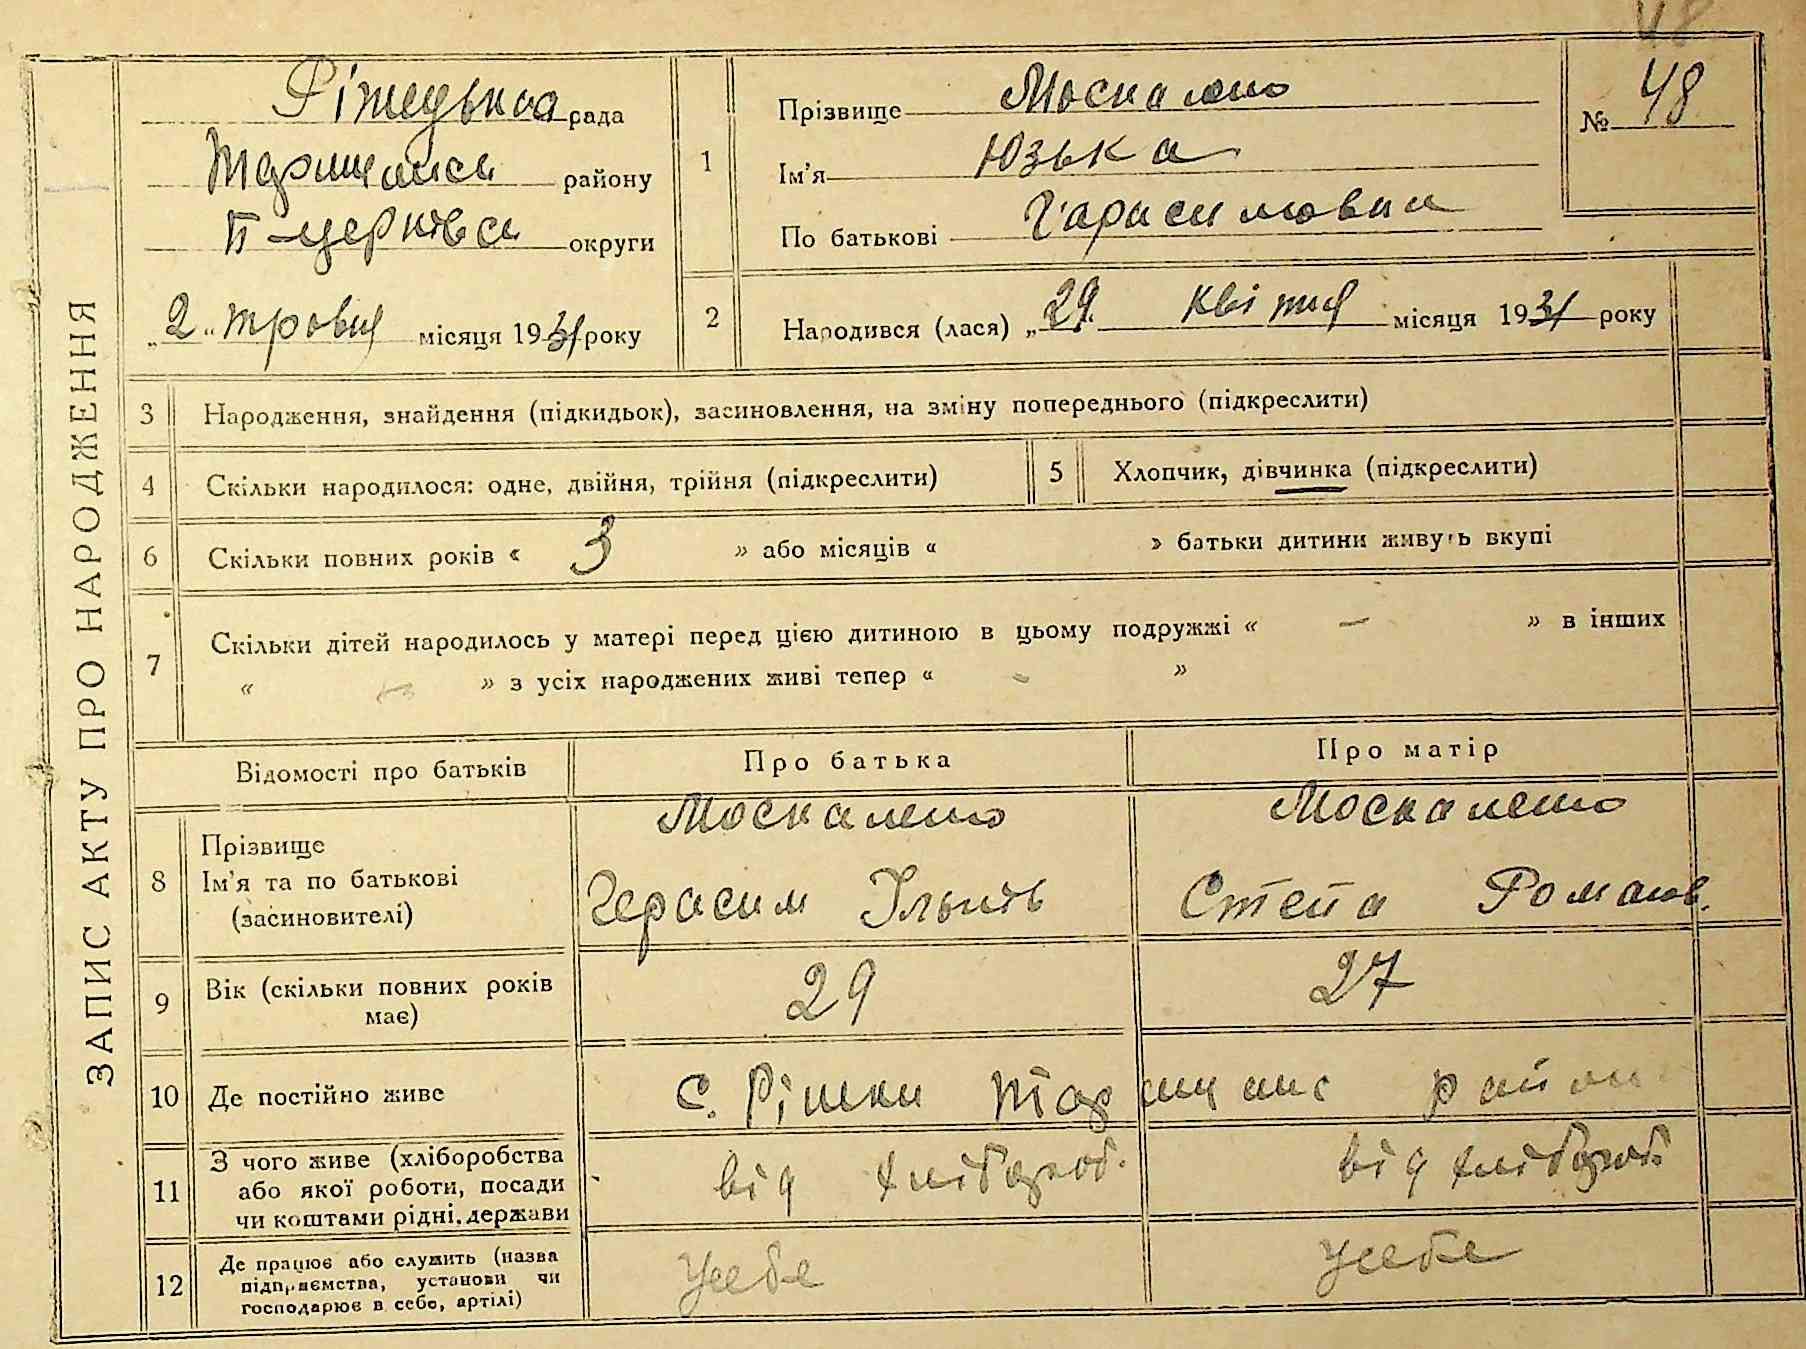 48
ЗАПИС АКТУ ПРО НАРОДЖЕННЯ
Ріжецька рада
Таращанськ району
Б-церківськ округи
„2„ травня місяця 1931 року
1
Прізвище Москаленко
Ім'я Юзька
По батькові Гарасимовна
№ 48
2
Народився (лася) „29„ Квітня місяця 1931 року
3 Народження, знайдення (підкидьок), засиновлення, на зміну попереднього (підкреслити)
4 Скільки народилося: одне, двійня, трійня (підкреслити)
5 Хлопчик, дівчинка (підкреслити)
6 Скільки повних років « 3 » або місяців « » батьки дитини живуть вкупі
7 Скільки дітей народилось у матері перед цією дитиною в цьому подружжі « — » в інших
« » з усіх народжених живі тепер « - »
Відомості про батьків
Про батька
Про матір
8 Прізвище
Ім'я та по батькові
(засиновителі)
Москаленко
Герасим Ільків
Москаленко
Степа Романов.
9 Вік (скільки повних років
має)
29
27
10 Де постійно живе
с. Ріжки Таращанс район
11 З чого живе (хліборобства
або якої роботи, посади
чи коштами рідні, держави
від хлібороб.
від хлібороб.
12 Де працює або служить (назва
підприємства, установи чи
господарює в себе, артілі)
усебе
усебе